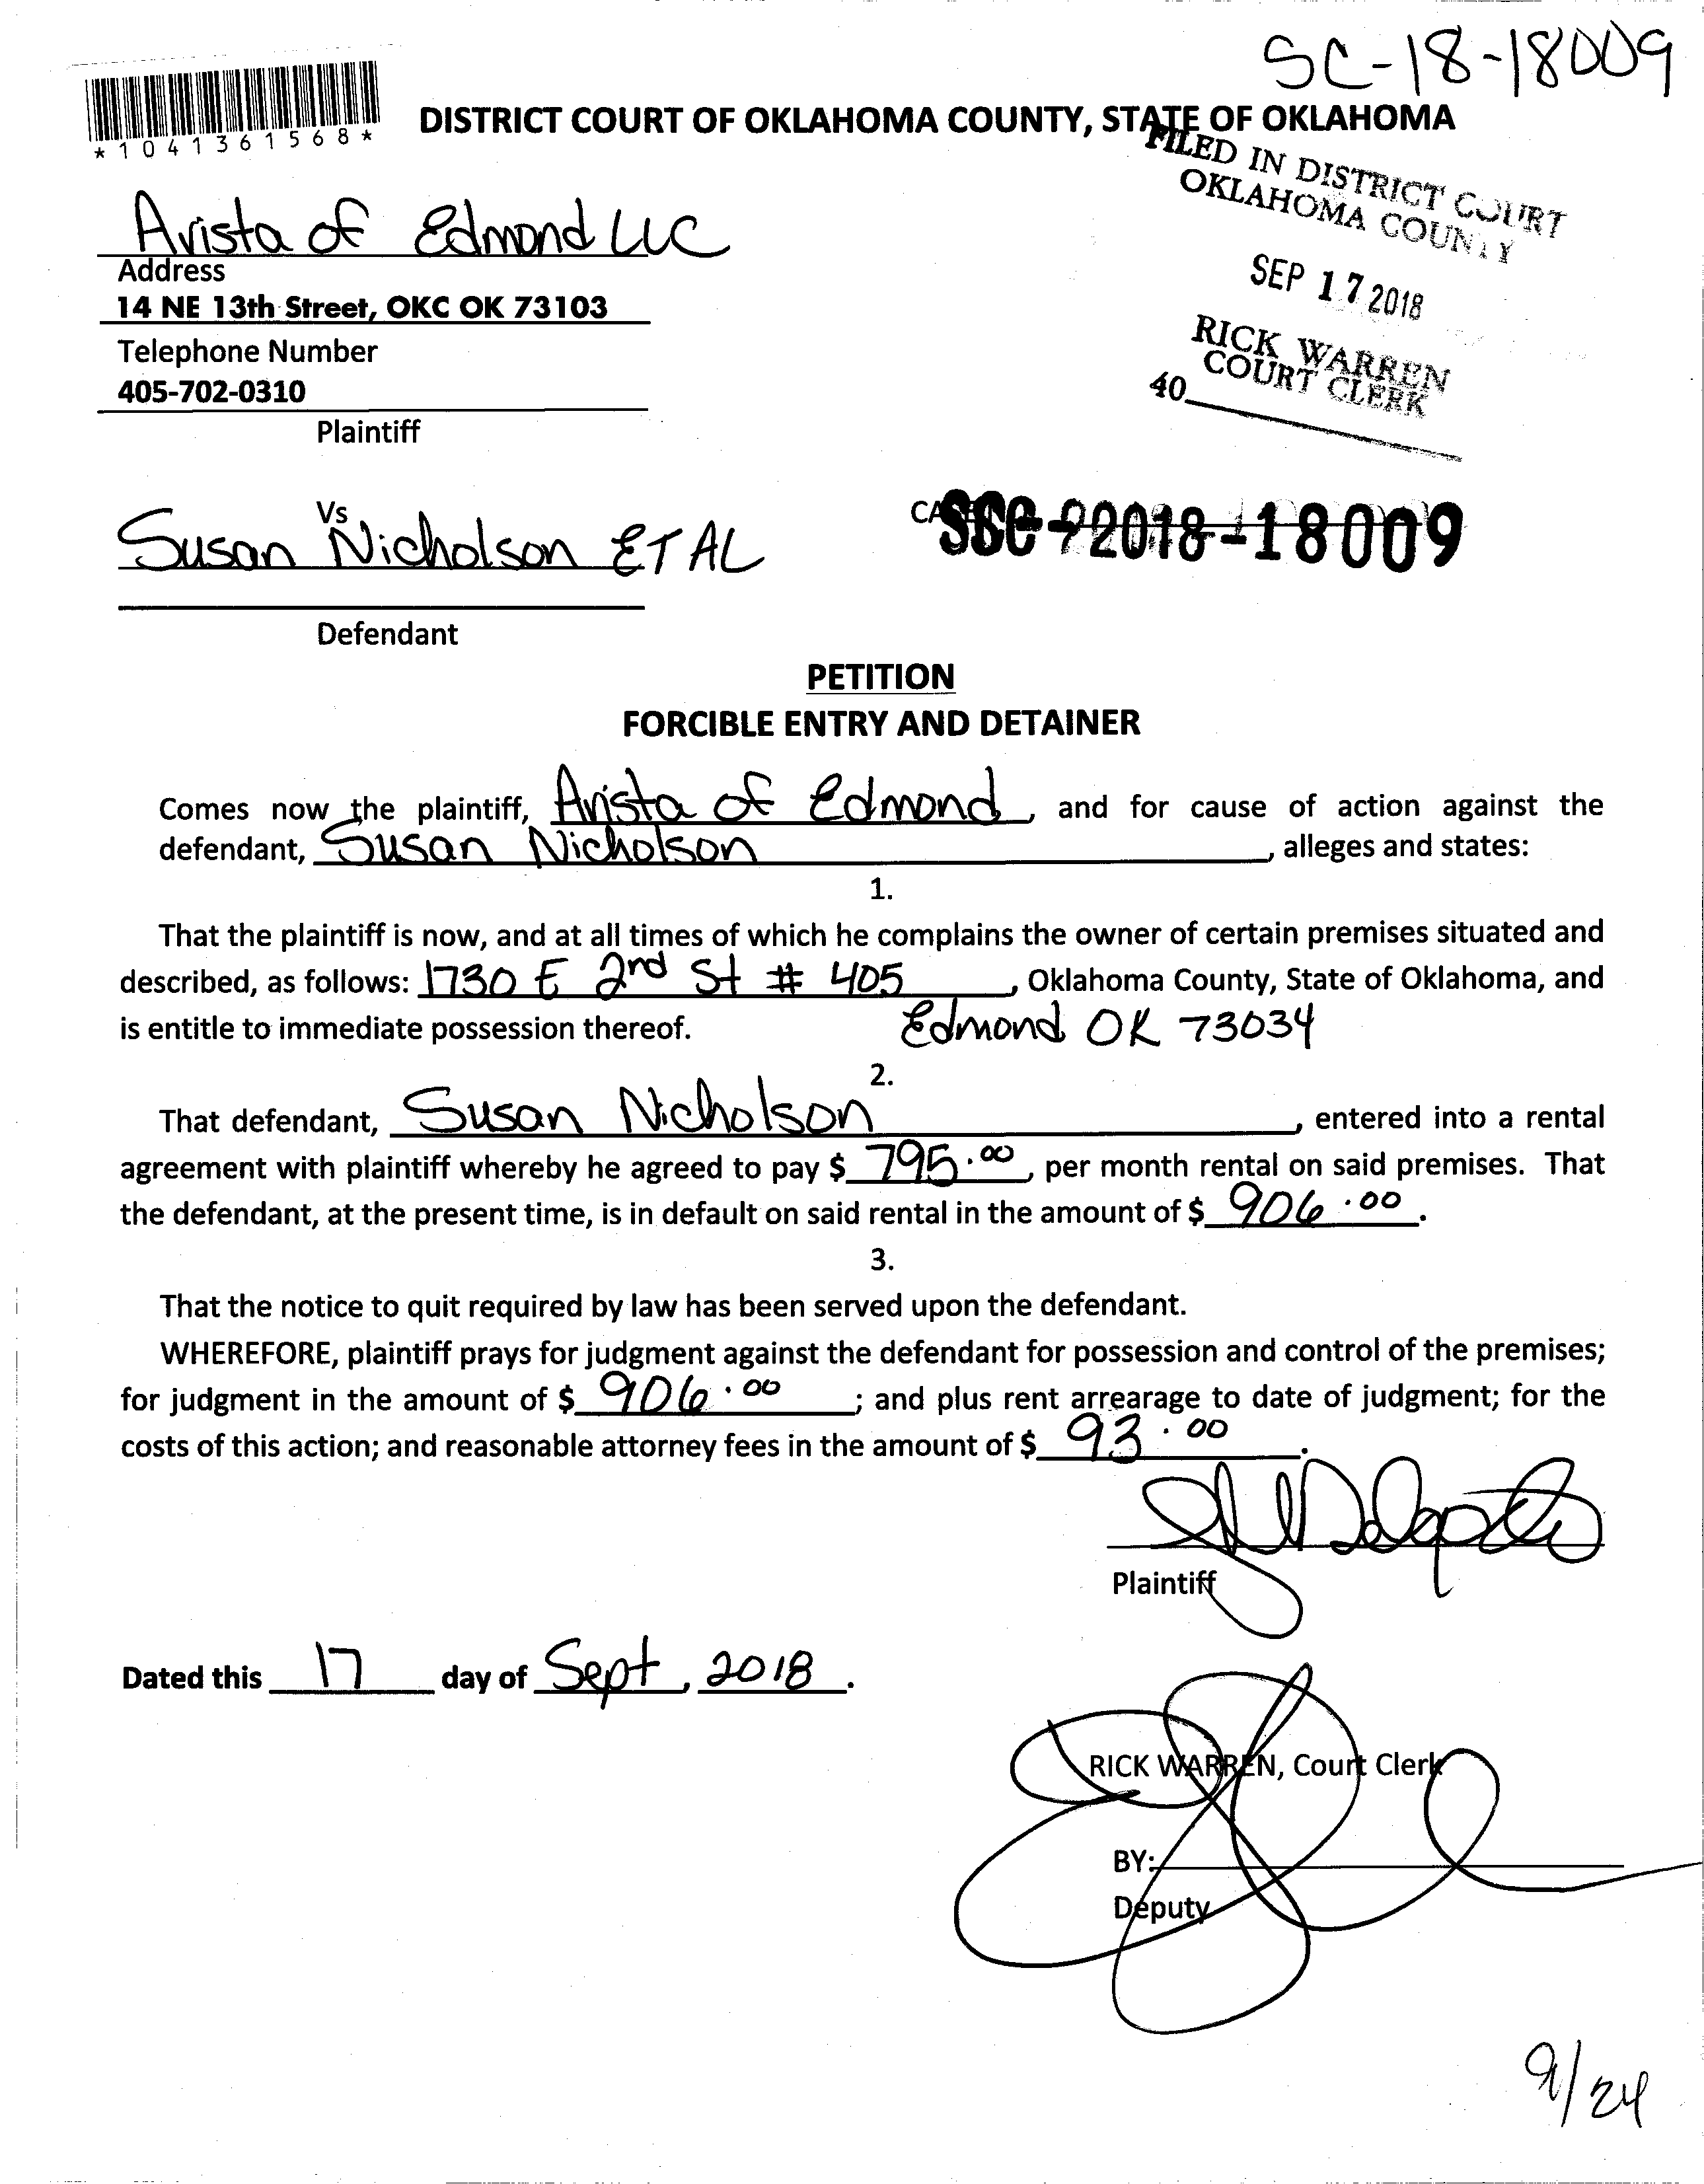 SC-18-18009
*1041361568*
DISTRICT COURT OF OKLAHOMA COUNTY, STATE OF OKLAHOMA
FILED IN DISTRICT COURT
OKLAHOMA COUNTY
SEP 17 2018
RICK WARREN
COURT CLERK
40
Arista of Edmond LLC
Address
14 NE 13th Street, OKC OK 73103
Telephone Number
405-702-0310
Plaintiff
Vs
Susan Nicholson ET AL
2018-18009
Defendant
PETITION
FORCIBLE ENTRY AND DETAINER
Comes now the plaintiff, Arista of Edmond, and for cause of action against the
defendant, Susan Nicholson, alleges and states:
1.
That the plaintiff is now, and at all times of which he complains the owner of certain premises situated and
described, as follows: 1730 E 2nd St # 405, Oklahoma County, State of Oklahoma, and
is entitle to immediate possession thereof. Edmond OK 73034
2.
That defendant, Susan Nicholson, entered into a rental
agreement with plaintiff whereby he agreed to pay $ 795.00, per month rental on said premises. That
the defendant, at the present time, is in default on said rental in the amount of $ 906.00.
3.
That the notice to quit required by law has been served upon the defendant.
WHEREFORE, plaintiff prays for judgment against the defendant for possession and control of the premises;
for judgment in the amount of $ 906.00; and plus rent arrearage to date of judgment; for the
costs of this action; and reasonable attorney fees in the amount of $ 93.00.
Plaintiff
Dated this 17 day of Sept, 2018.
RICK WARREN, Court Clerk
BY:
Deputy
9/24